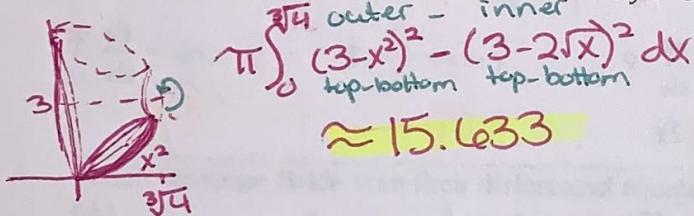 outer - inner
π∫₀^∛4 (3-x²)² - (3-2√x)² dx
top-bottom top-bottom
≈15.633
3
x²
∛4